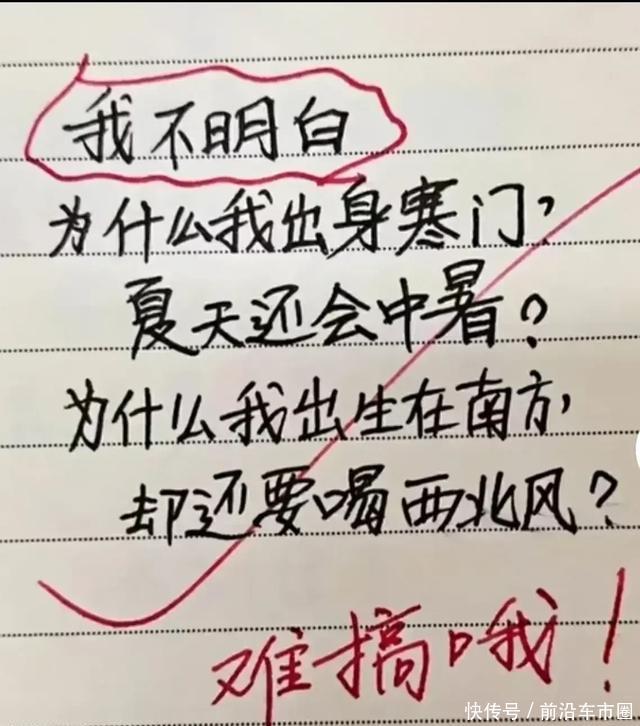 我不明白
为什么我出身寒门,
夏天还会中暑?
为什么我出生在南方,
却还要喝西北风?
难搞哦!
快传号/前沿车市圈